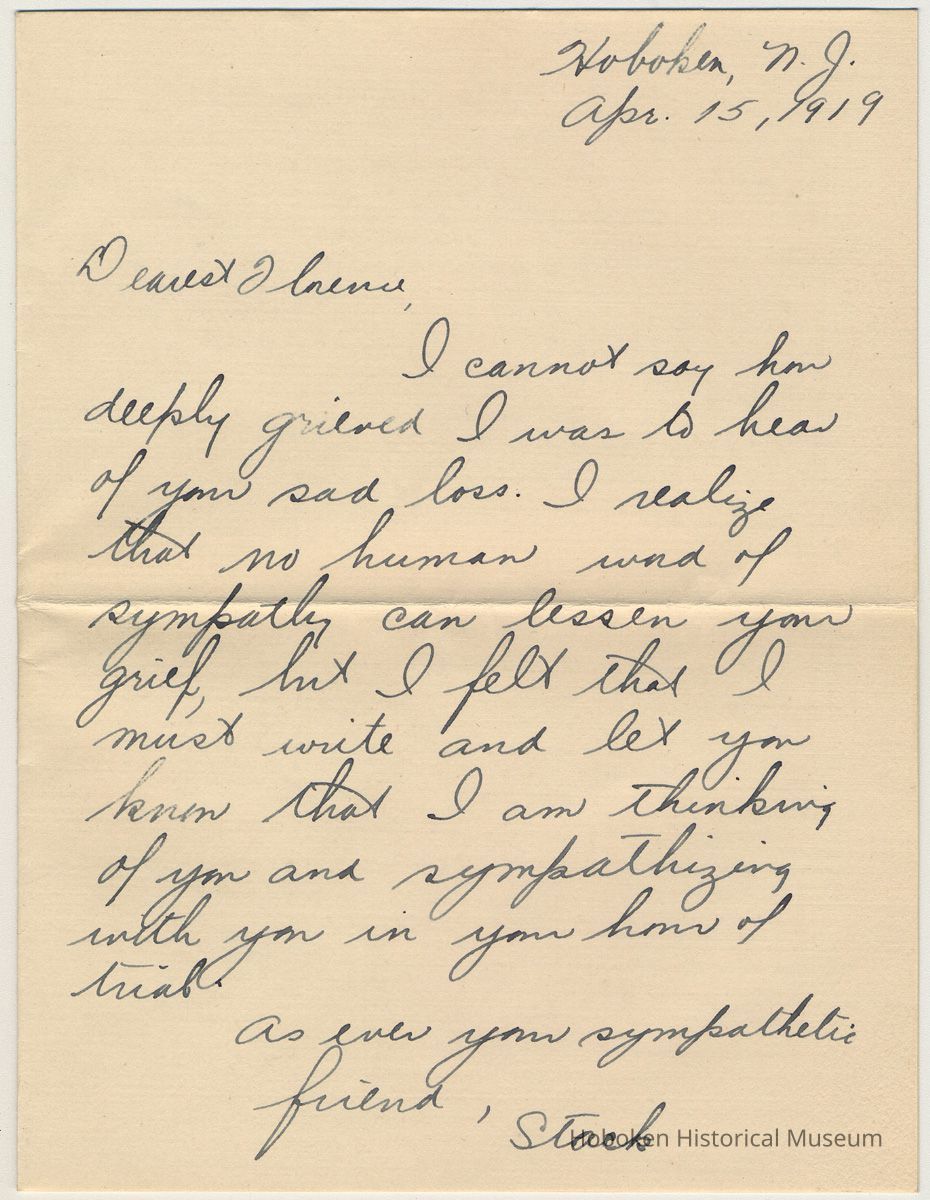 Hoboken, N. J.
Apr. 15, 1919
Dearest Florence,
I cannot say how
deeply grieved I was to hear
of your sad loss. I realize
that no human word of
sympathy can lessen your
grief, but I felt that I
must write and let you
know that I am thinking
of you and sympathizing
with you in your hour of
trial.
As ever your sympathetic
friend,
Stack
Hoboken Historical Museum